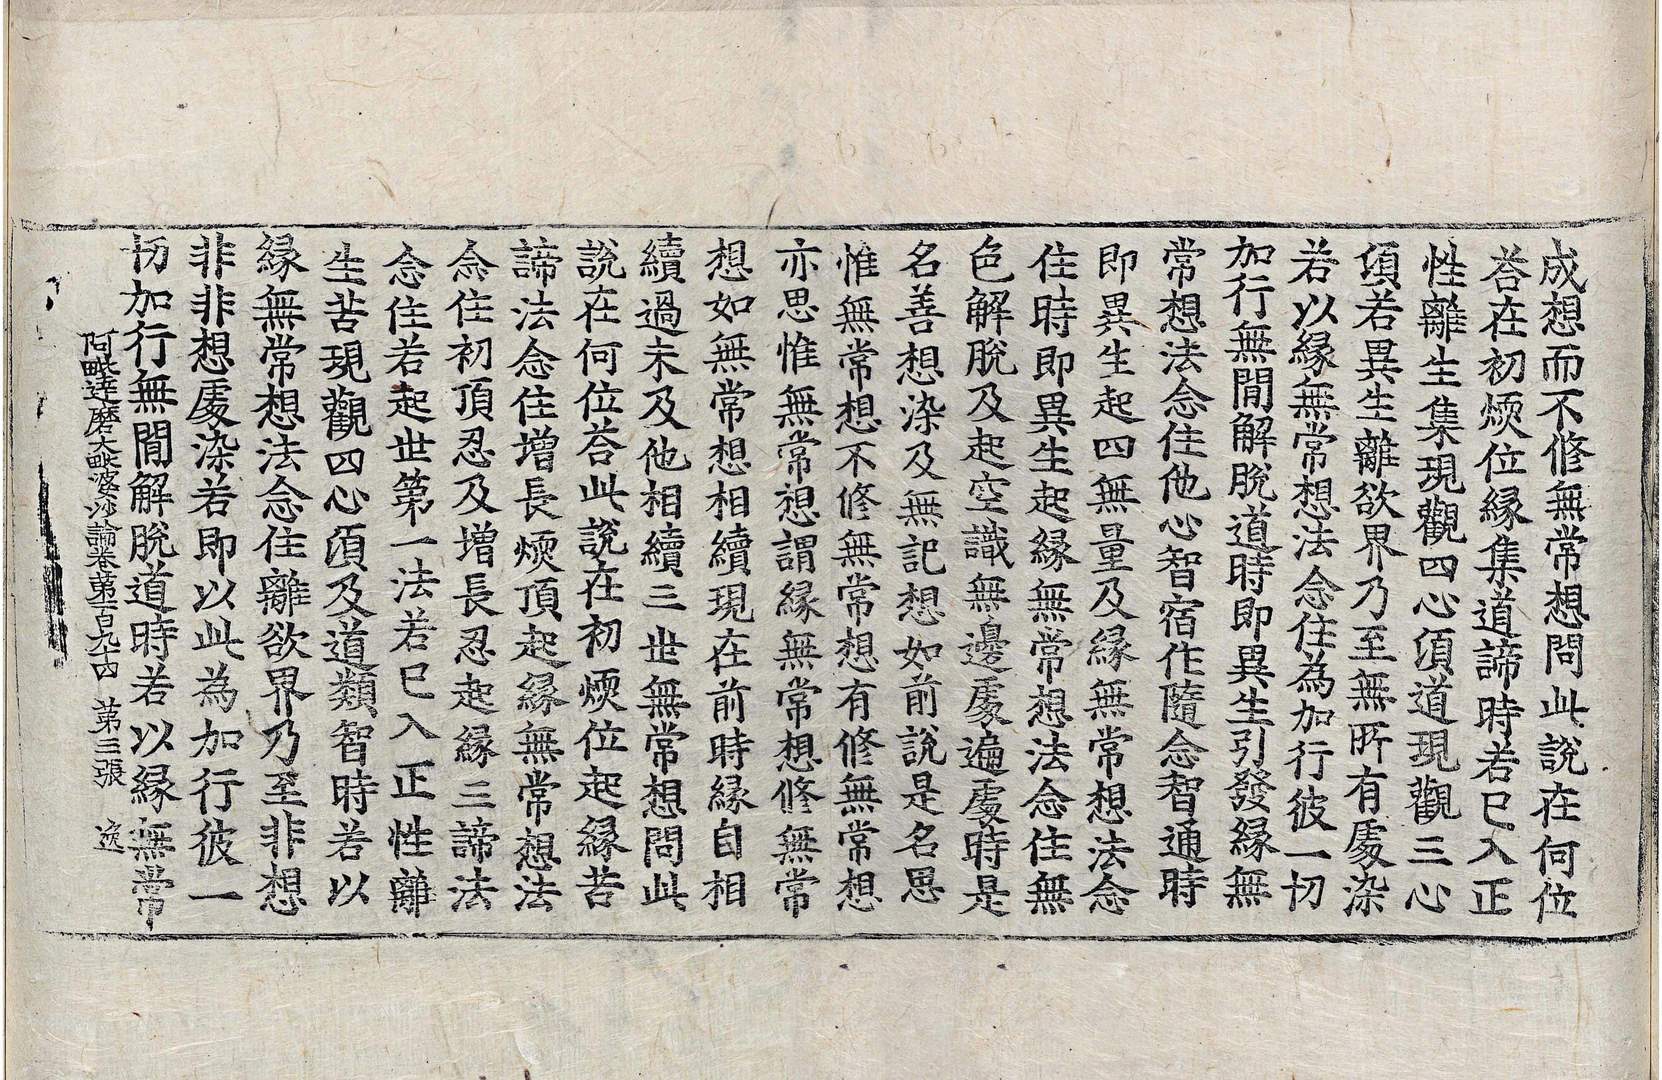 成想而不修無常想問此說在何位
荅在初煗位緣集道諦時若已入正
性離生集現觀四心湏道現觀三心
湏若異生離欲界乃至無所有處染
若以緣無常想法念住為加行彼一切
加行無閒解脫道時即異生引發緣無
常想法念住他心智宿住隨念智通時
即異生起四無量及緣無常想法念
住時即異生起緣無常想法念住無
色解脫及起空識無邊處遍處時是
名善想染及無記想如前說是名思
惟無常想不修無常想有修無常想
亦思惟無常想謂緣無常想修無常
想如無常想相續現在前時緣自相
續過未及他相續三世無常想問此
說在何位荅此說在初煗位起緣苦
諦法念住增長煗頂起緣無常想法
念住初頂忍及增長忍起緣三諦法
念住若起世第一法若已入正性離
生苦現觀四心湏及道類智時若以
緣無常想法念住離欲界乃至非想
非非想處染若即以此為加行彼一
切加行無閒解脫道時若以緣無常
阿毗達磨大毗婆沙論卷第一百九十四 第三張 逸